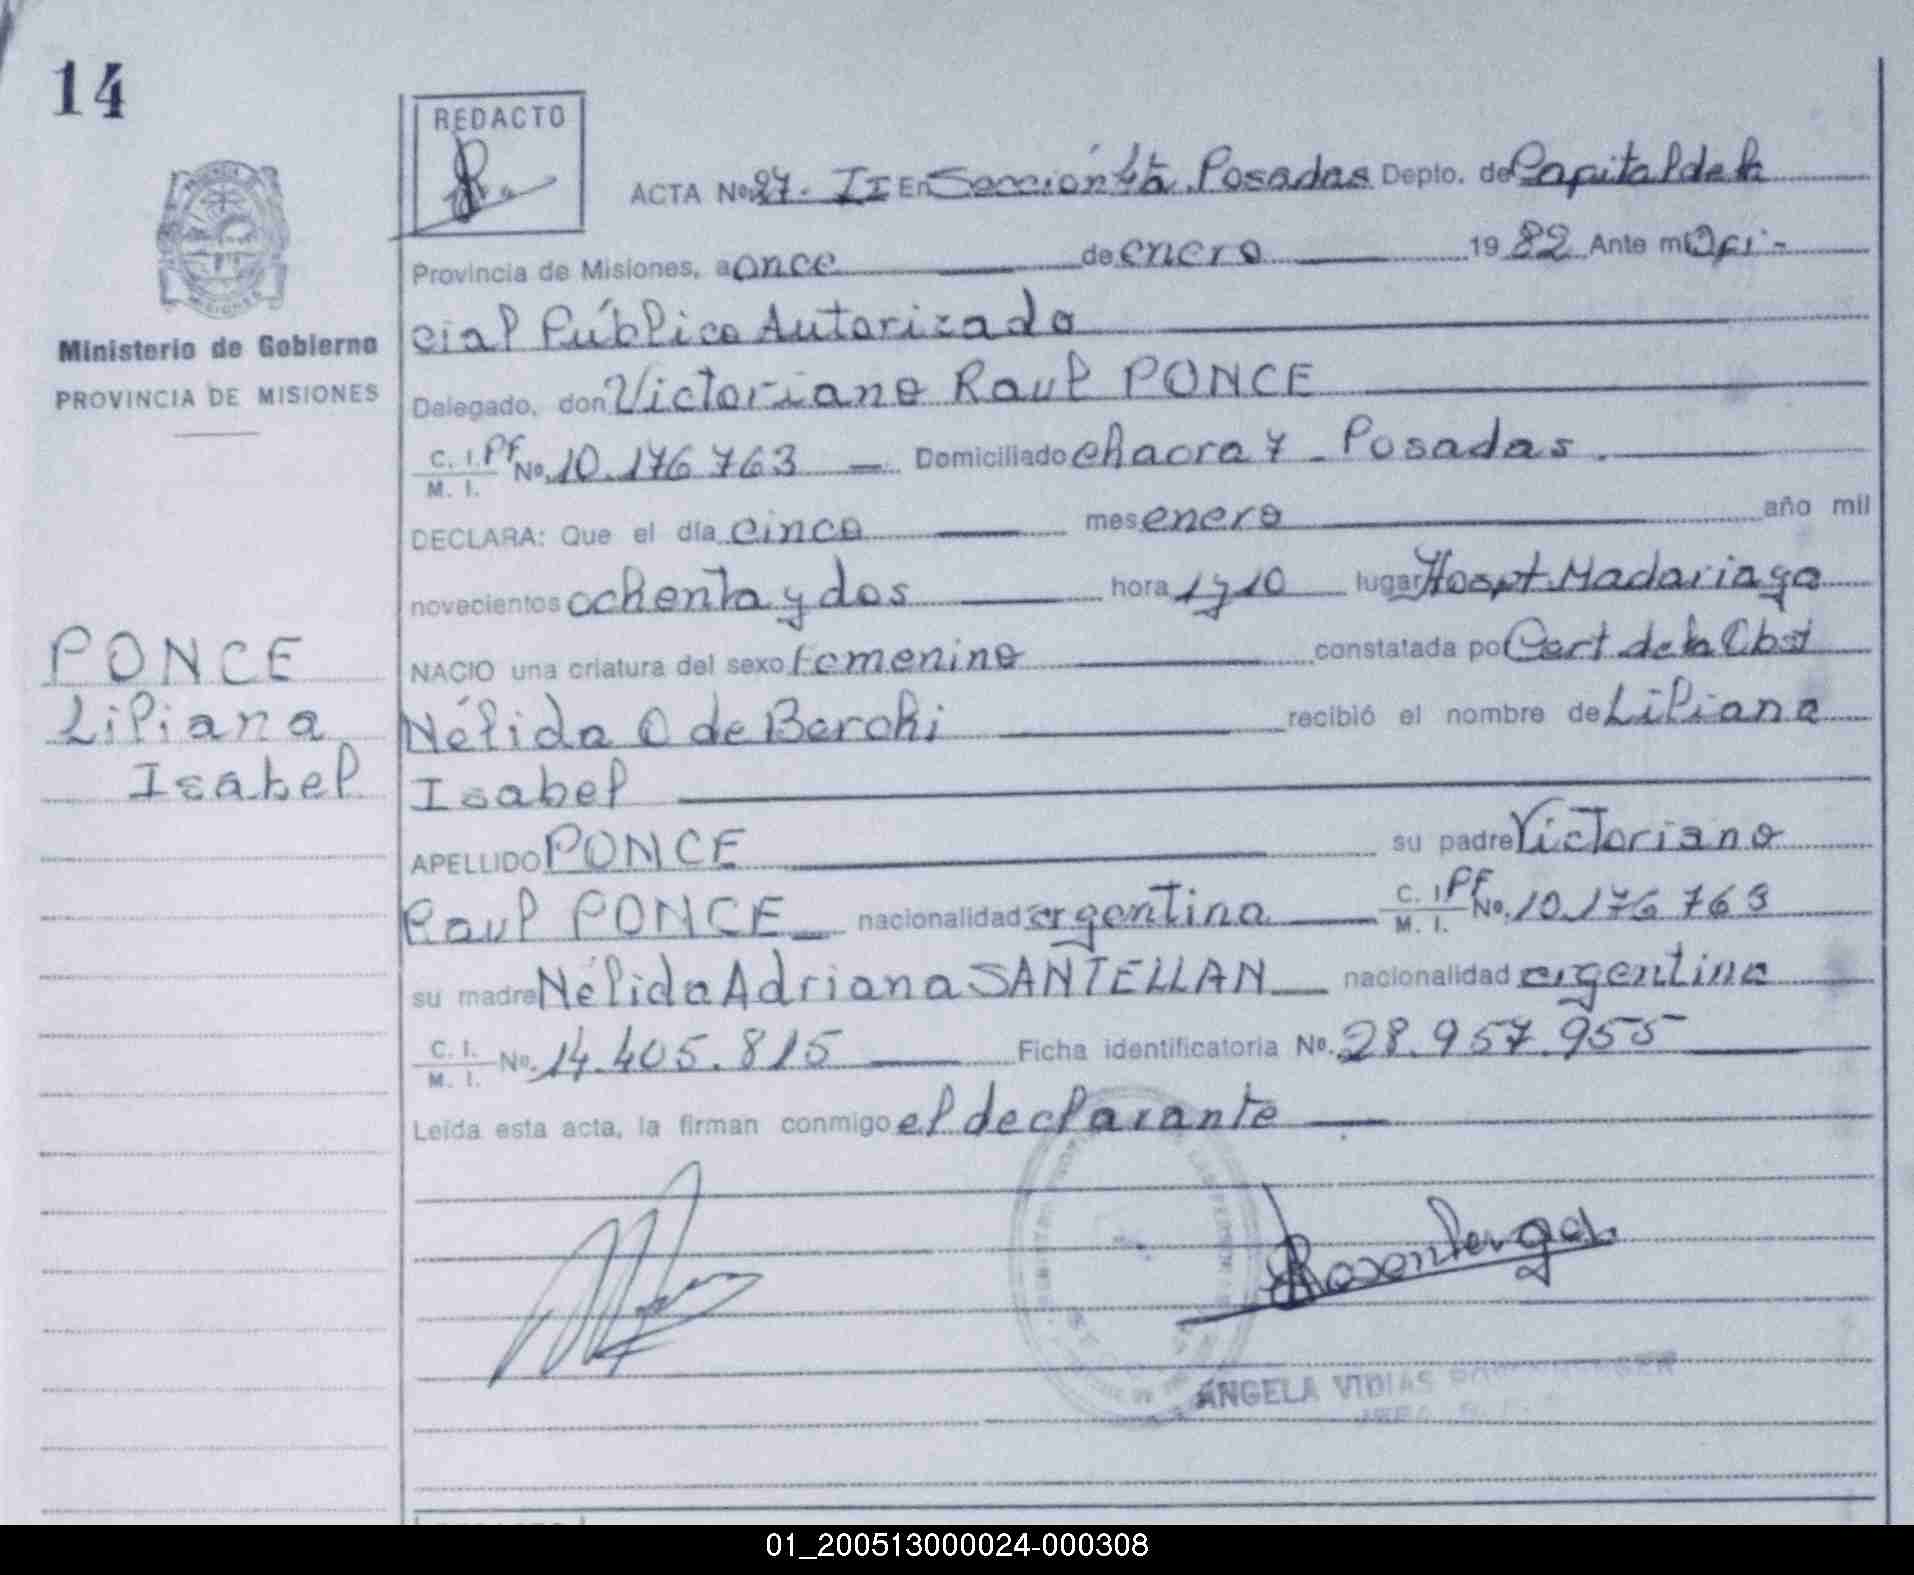 14
REDACTO
ACTA No 27. II En Sección 4ta. Posadas Depto. de Capital de la
Provincia de Misiones, a once de enero 1982 Ante mi Ofi-
cial Público Autorizado
Ministerio de Gobierno
PROVINCIA DE MISIONES
Delegado, don Victoriano Raul PONCE
C. I. PF No. 10.176763 Domiciliado chacra 7 - Posadas.
M. I.
DECLARA: Que el día cinco mes enero año mil
novecientos ochenta y dos hora 1y10 lugar Hospt. Madariaga
PONCE
Liliana
Isabel
NACIO una criatura del sexo femenino constatada po Cert. de la Obst
Nélida O de Berchi recibió el nombre de Liliana
Isabel
APELLIDO PONCE su padre Victoriano
Raul PONCE nacionalidad argentina C. I. PF No. 10.176763
M. I.
su madre Nélida Adriana SANTELLAN nacionalidad argentina
C. I. No. 14.405.815 Ficha identificatoria No. 28.957.955
M. I.
Leída esta acta, la firman conmigo el declarante
ANGELA VIDIAS
01_200513000024-000308